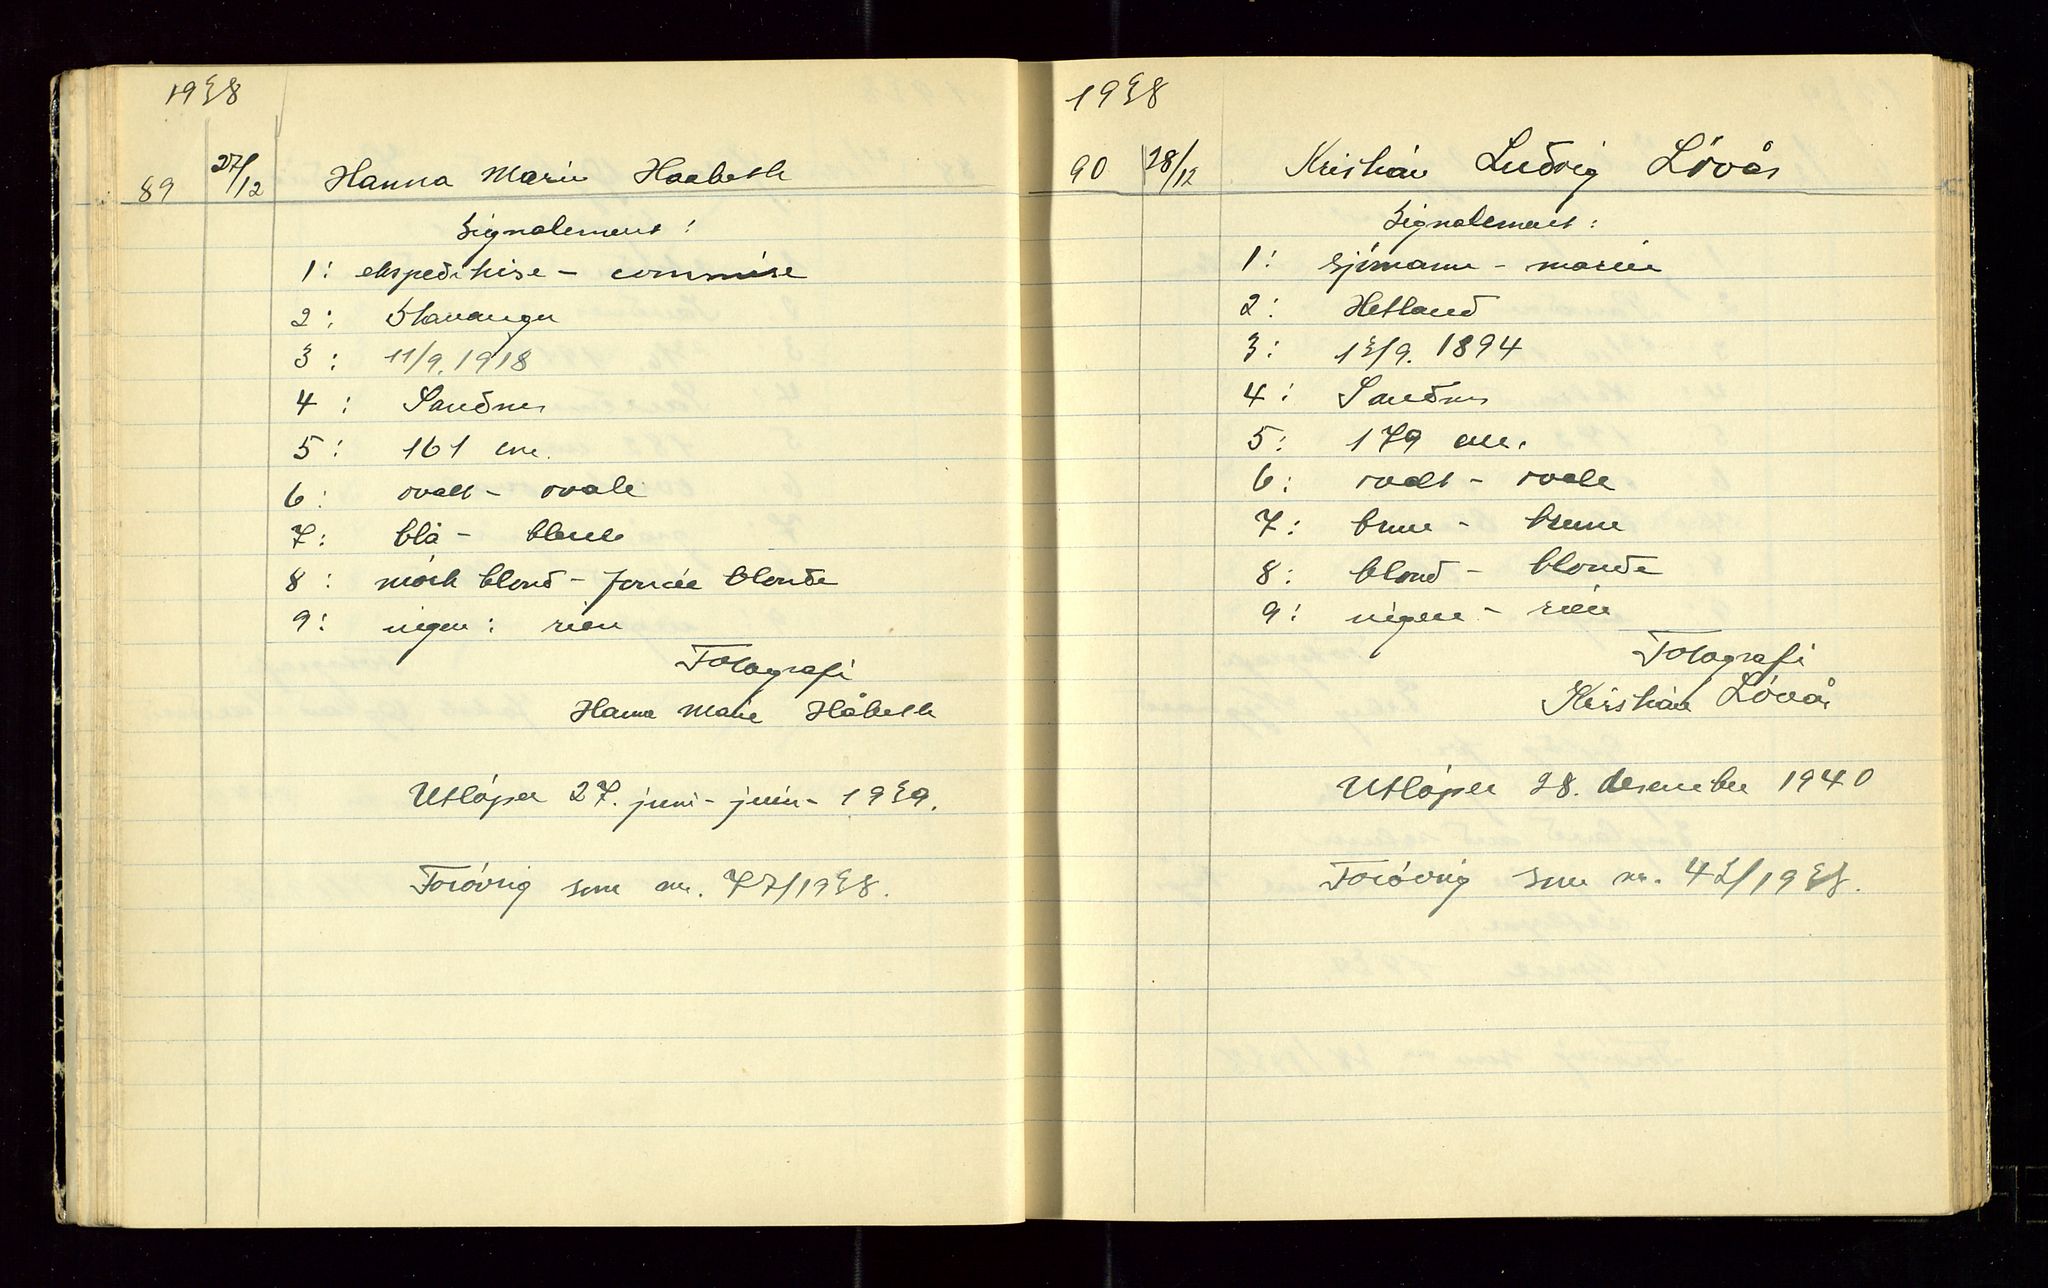 1938
89 27/12 Hanna Marie Haabeth
Signalement:
1: ekspeditrise - commise
2: Stavanger
3: 11/9. 1918
4: Sandnes
5: 161 cm.
6: ovalt - ovale
7: blå - bleue
8: mörk blond - foncée blonde
9: ingen: rien
Fotografi
Hanna Marie Håbeth
Utlöper 27. juni - juin - 1939.
Forövrig som nr. 77/1938.
1938
90 28/12 Kristian Ludvig Lövås
Signalement:
1: sjömann - marin
2: Hetland
3: 13/9. 1894
4: Sandnes
5: 179 cm.
6: ovalt - ovale
7: brune - brune
8: blond - blonde
9: ingen - rien
Fotografi
Kristian Lövås
Utlöper 28. desember 1940
Forövrig som nr. /1938.